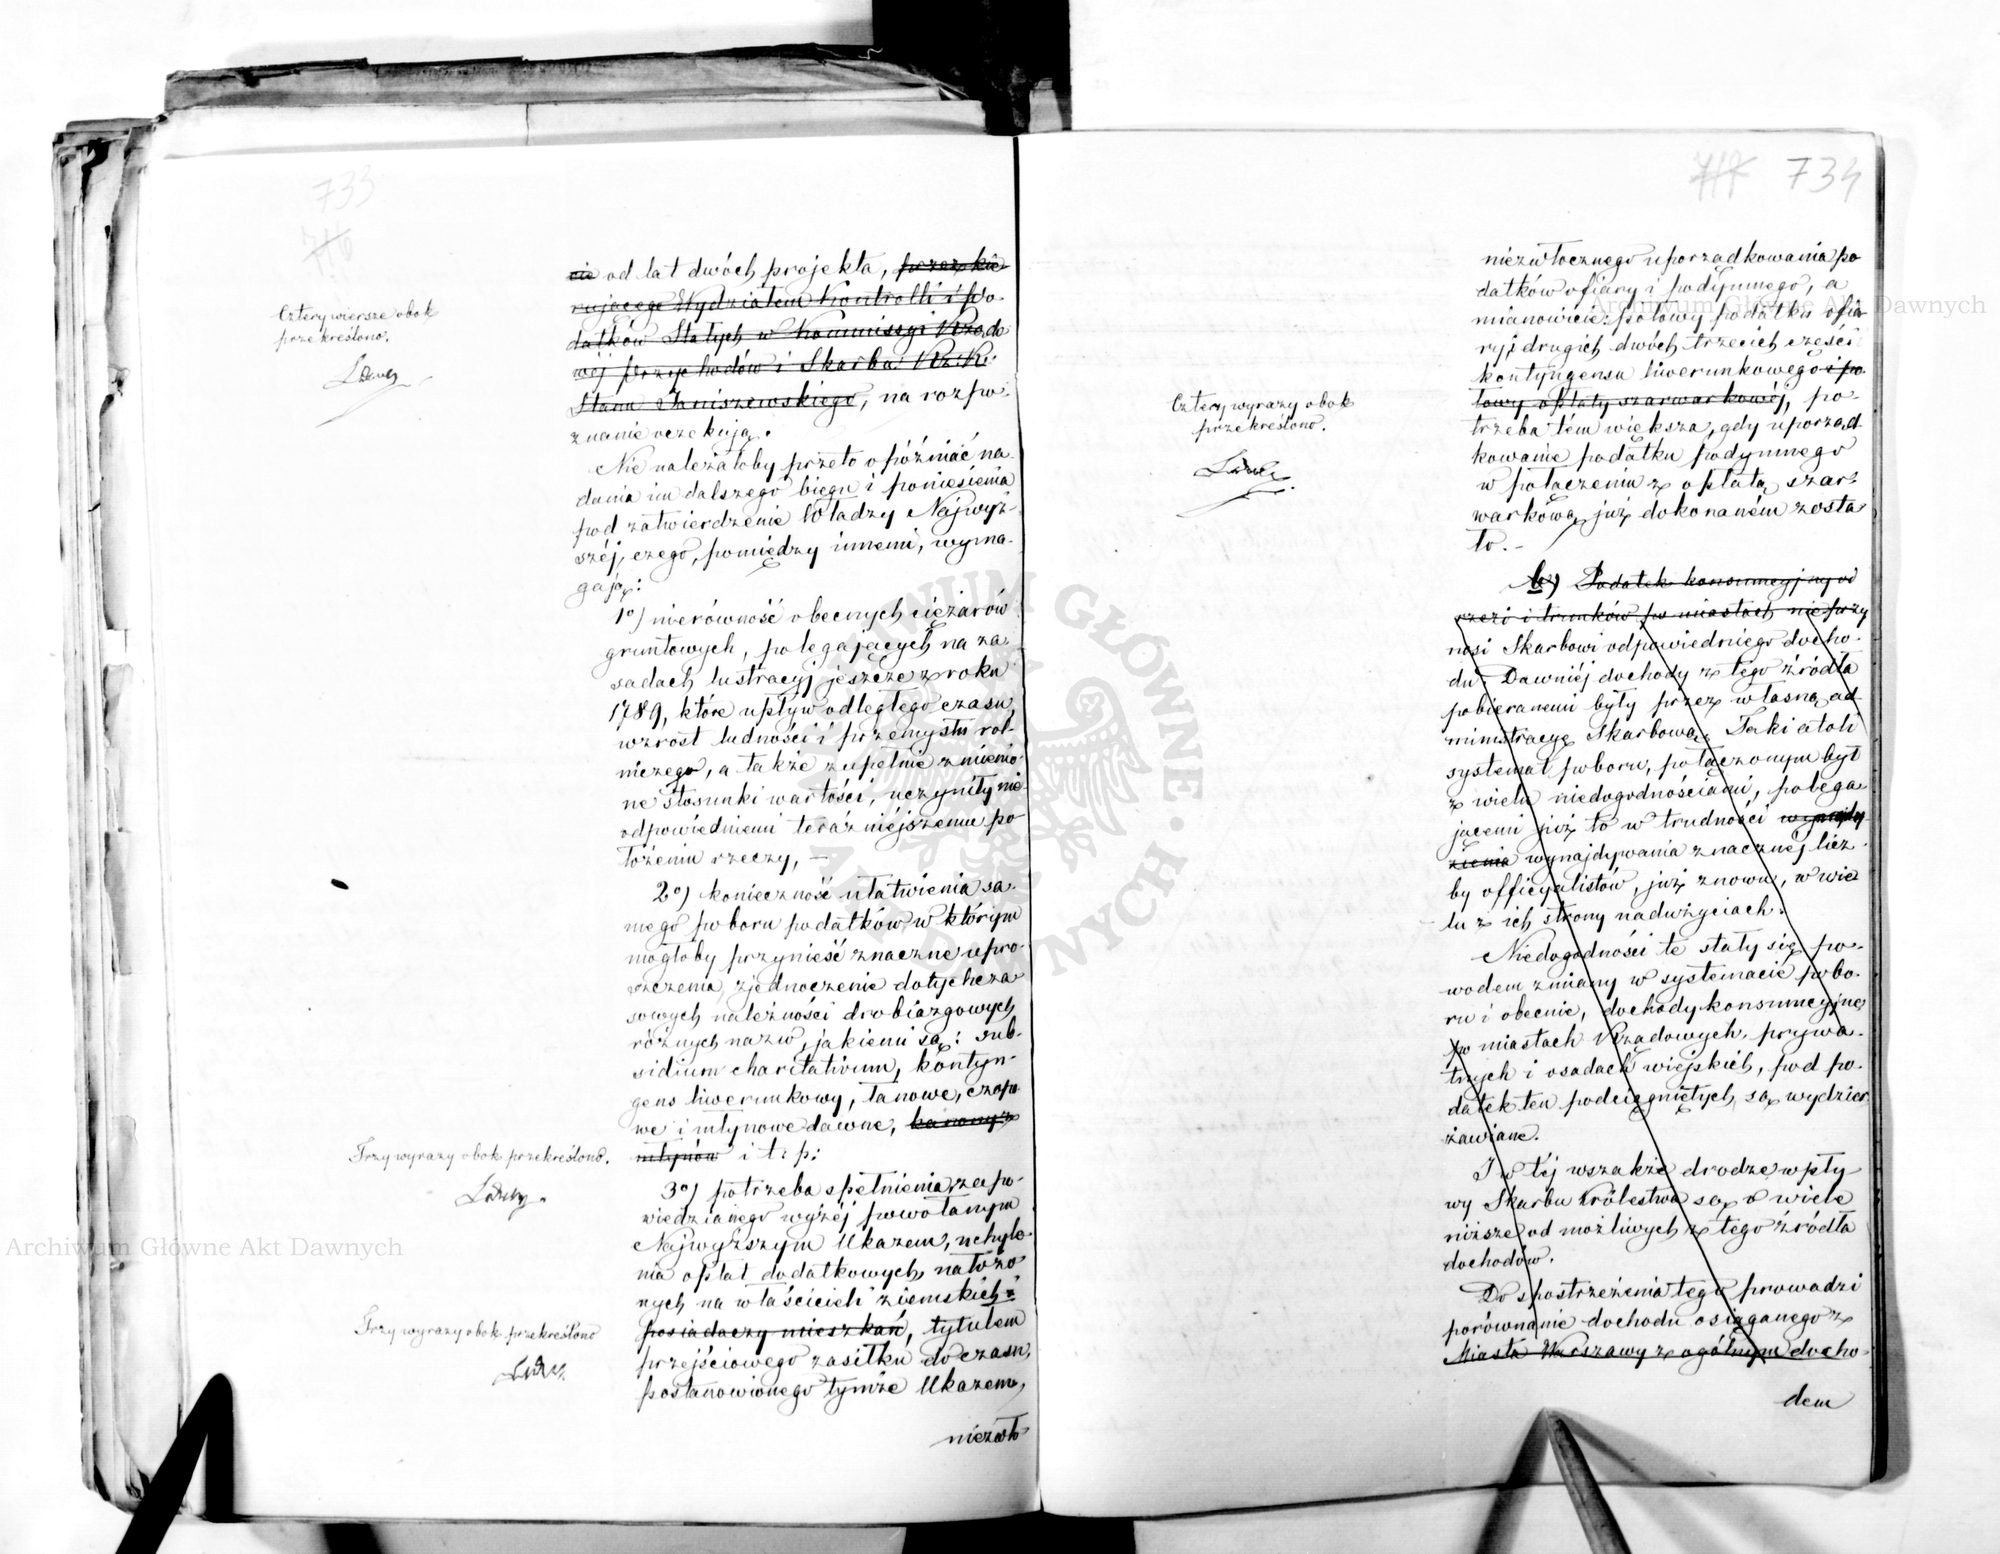 733
716
Cztery wiersze obok
przekreślono.
cie od lat dwóch projekta, przez kie-
rującego Wydziałem Kontrolli i Po-
datków Stałych w Kommissyi Rządo-
wéj Przychodów i Skarbu Rz. R.
Stanu Janiszewskiego, na rozpo-
znanie oczekują.
Nie należałoby przeto opóźniać na-
dania im dalszego biegu i poniesienia
pod zatwierdzenie Władzy Najwyż-
széj, czego, pomiędzy innemi, wyma-
gają:
1o) nierówność obecnych ciężarów
gruntowych, polegających na za-
sadach lustracyj jeszcze z roku
1789, które upływ odległego czasu,
wzrost ludności i przemysłu rol-
niczego, a także zupełnie zmienio-
ne stosunki wartości, uczyniły nie-
odpowiedniemi teraźniejszemu po-
łożeniu rzeczy, —
2o) konieczność ułatwienia sa-
mego poboru podatków, w którym
mogłoby przynieść znaczne upro-
szczenia, zjednoczenie dotychcza-
sowych należności drobiazgowych
różnych nazw, jakiemi są: sub-
sidium charitativum, kontyn-
gens liwerunkowy, łanowe, czopo-
we i młynowe dawne, kanony z
młynów i t. p:
Trzy wyrazy obok przekreślono.
3o) potrzeba spełnienia zapo-
wiedzianego wyżéj powołanym
Najwyższym Ukazem, uchyle-
nia opłat dodatkowych nałożo-
nych na właścicieli ziemskich i
posiadaczy mieszkań, tytułem
przejściowego zasiłku do czasu,
postanowionego tymże Ukazem,
Trzy wyrazy obok przekreślono
niezwło-
717 734
niezwłocznego uporządkowania po-
datków ofiary i podymnego, a
mianowicie: połowy podatku ofia-
ry, i drugich dwóch trzecich części
kontyngensu liwerunkowego i po-
łowy opłaty szarwarkowéj, po-
trzeba tém większa, gdy uporząd-
kowanie podatku podymnego
w połączeniu z opłatą szar-
warkową już dokonaném zosta-
ło. —
Cztery wyrazy obok
przekreślono.
b) Podatek konsumcyjny od
rzezi i trunków po miastach nie przy-
nosi Skarbowi odpowiedniego docho-
du. Dawniéj dochody z tego źródła
pobieranemi były przez własną ad-
ministracyę Skarbową. Taki atoli
systemat poboru, połączonym był
z wielu niedogodnościami, polega-
jącemi już to w trudności
wynajdywania znacznéj licz-
by officyalistów, już znowu, w wie-
lu z ich strony nadużyciach.
Niedogodności te stały się po-
wodem zmiany w systemacie pobo-
ru i obecnie, dochody konsumcyjne
po miastach Rządowych, prywa-
tnych i osadach wiejskich, pod po-
datek ten podciągniętych, są wydzier-
żawiane.
I w téj wszakże drodze wpły-
wy Skarbu Królestwa są o wiele
niższe od możliwych z tego źródła
dochodów.
Do spostrzeżenia tego prowadzi
porównanie dochodu osiąganego z
Miasta Warszawy z ogólnym docho-
dem
Archiwum Główne Akt Dawnych
Archiwum Główne Akt Dawnych
ARCHIWUM GŁÓWNE AKT DAWNYCH